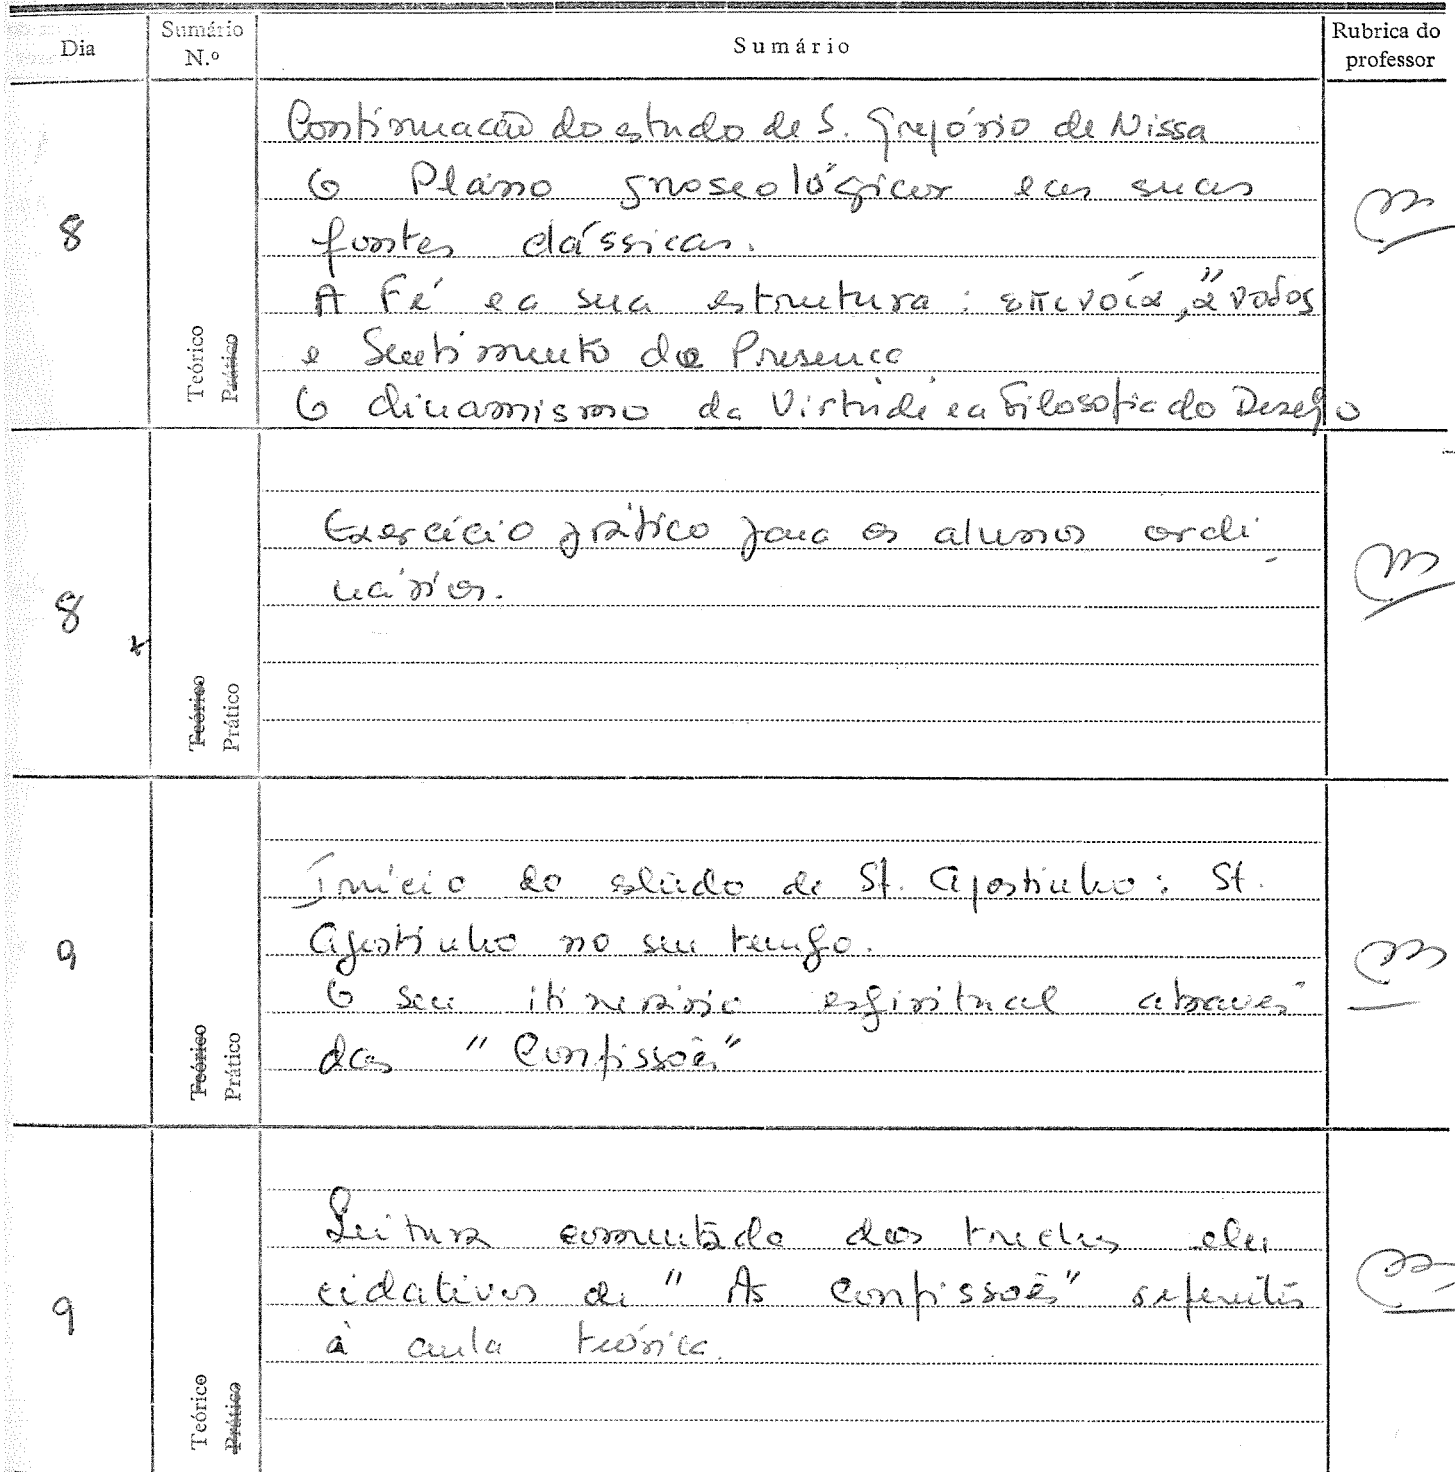 Dia
Sumário
N.º
Sumário
Rubrica do
professor
8
Teórico
Prático
Continuação do estudo de S. Gregório de Nissa
O Plano gnoseológico e as suas
fontes clássicas.
A Fé e a sua estrutura : επινοία, ἄνοδος
e Sentimento de Presença
O dinamismo da Virtude e a Filosofia do Desejo
8
Teórico
Prático
Exercício prático para os alunos ordi
nários.
9
Teórico
Prático
Início do estudo de St. Agostinho : St.
Agostinho no seu tempo.
O seu itinerário espiritual através
das "Confissões"
9
Teórico
Prático
Leitura comentada dos trechos elu
cidativos de "As Confissões" referentes
à aula teórica.